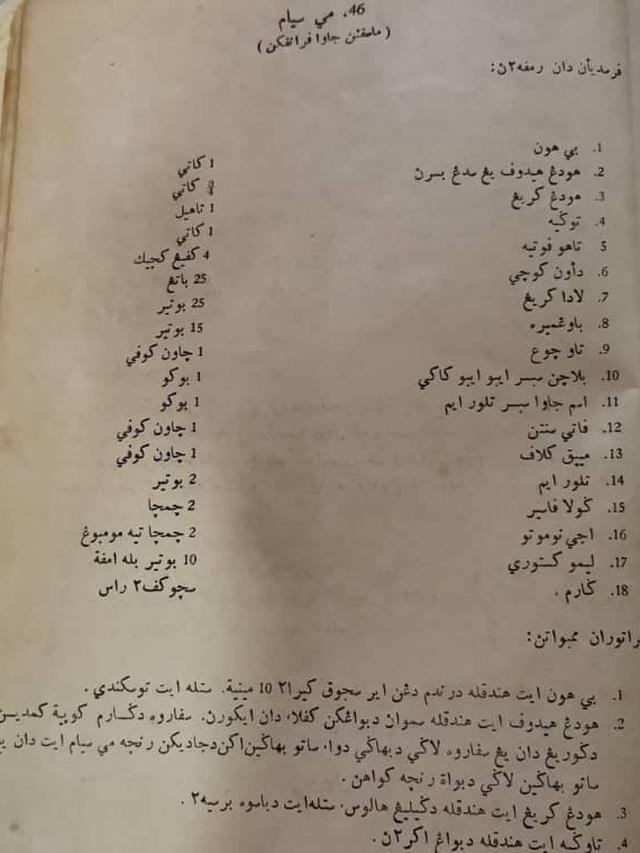 46. مي سيام
(ماسقئن جاوا فراتفكن)
فرسدیأن دان رمفه٢ن:
1. بي هون 1 كاتي
2. هودڠ هيدوف يڠ سدڠ بسرن كاتي
3. هودڠ كريڠ 1 تاهيل
4. توڬيه 1 كاتي
5 تاهو فوتيه 4 كفيڠ كچيك
6. دأون كوچي 25 باتڠ
7. لادا كريڠ 25 بوتير
8. باوڠميره 15 بوتير
9. تاوچوع 1 چاون كوفي
10. بلاچن سبسر ايبو ايبو كاكي 1 بوكو
11. اسم جاوا سبسر تلور ايم 1 بوكو
12. فاتي سنتن 1 چاون كوفي
13. ميڽق كلاف 1 چاون كوفي
14. تلور ايم 2 بوتير
15. ڬولا فاسير 2 چمچا
16. اجي نوموتو 2 چمچا تيه مومبوڠ
17. ليمو كستوري 10 بوتير بله امفة
18. ڬارم. سچوكف٢ راس
راتوران ممبواتن:
1. بي هون ايت هندقله درندم دڠن اير سجوق كيرا٢ 10 مينية. ستله ايت توسكندي.
2. هودڠ هيدوف ايت هندقله سموان دبواڠكن كفلا، دان ايكورن. سفاروه دڬارم كوبية كمدين
دڬوريڠ دان يڠ سفاروه لاڬي دبهاڬي دوا، ساتو بهاڬين اكن دجاديكن رنچه مي سيام ايت دان يڠ
ساتو بهاڬين لاڬي دبواة رنچه كواهن.
3. هودڠ كريڠ ايت هندقله دڬيليڠ هالوس، ستله ايت دباسوه برسيه٢.
4. تاوڬه ايت هندقله دبواڠ اكر٢ن.